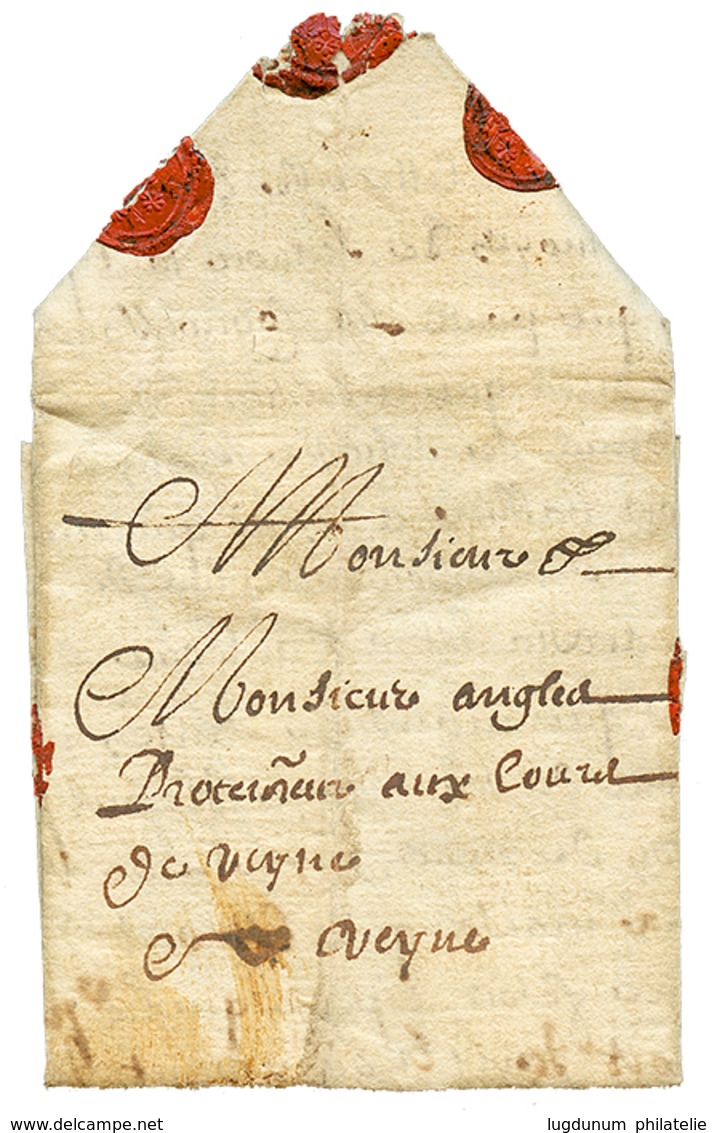 Monsieur &
Monsieur angles
aux Cours
de veyne
A veyne
www.delcampe.net
lugdunum philatelie